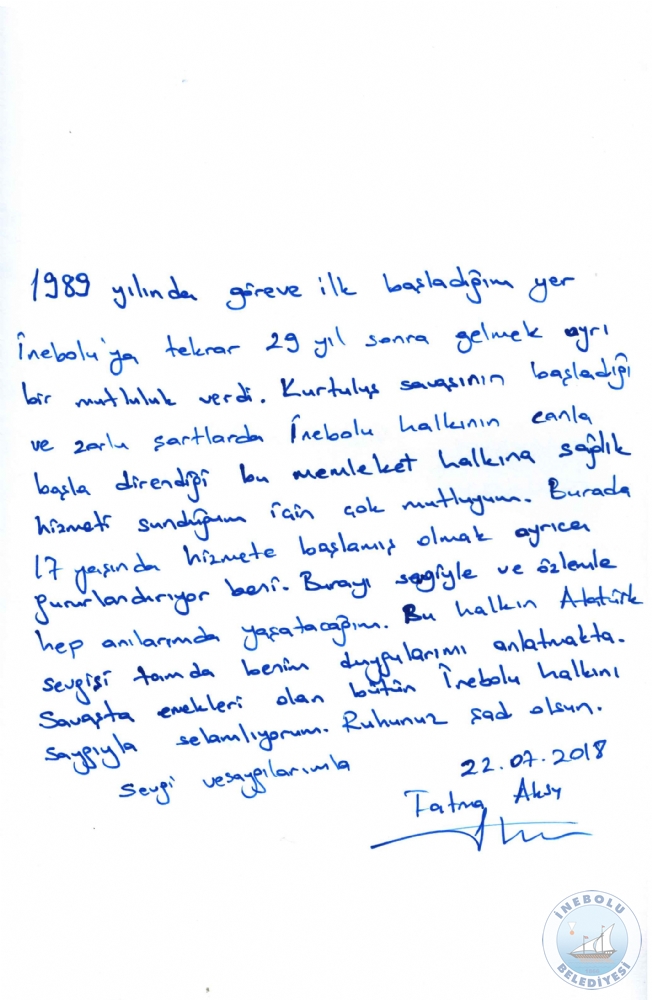 1989 yılında göreve ilk başladığım yer
İnebolu'ya tekrar 29 yıl sonra gelmek ayrı
bir mutluluk verdi. Kurtuluş savaşının başladığı
ve zorlu şartlarda İnebolu halkının canla
başla direndiği bu memleket halkına sağlık
hizmeti sunduğum için çok mutluyum. Burada
17 yaşında hizmete başlamış olmak ayrıca
gururlandırıyor beni. Burayı sevgiyle ve özlemle
hep anılarımda yaşatacağım. Bu halkın Atatürk
sevgisi tamda benim duygularımı anlatmakta.
Savaşta emekleri olan bütün İnebolu halkını
saygıyla selamlıyorum. Ruhunuz şad olsun.
Sevgi vesaygılarımla 22.07.2018
Fatma Aksy
İNEBOLU
BELEDİYESİ